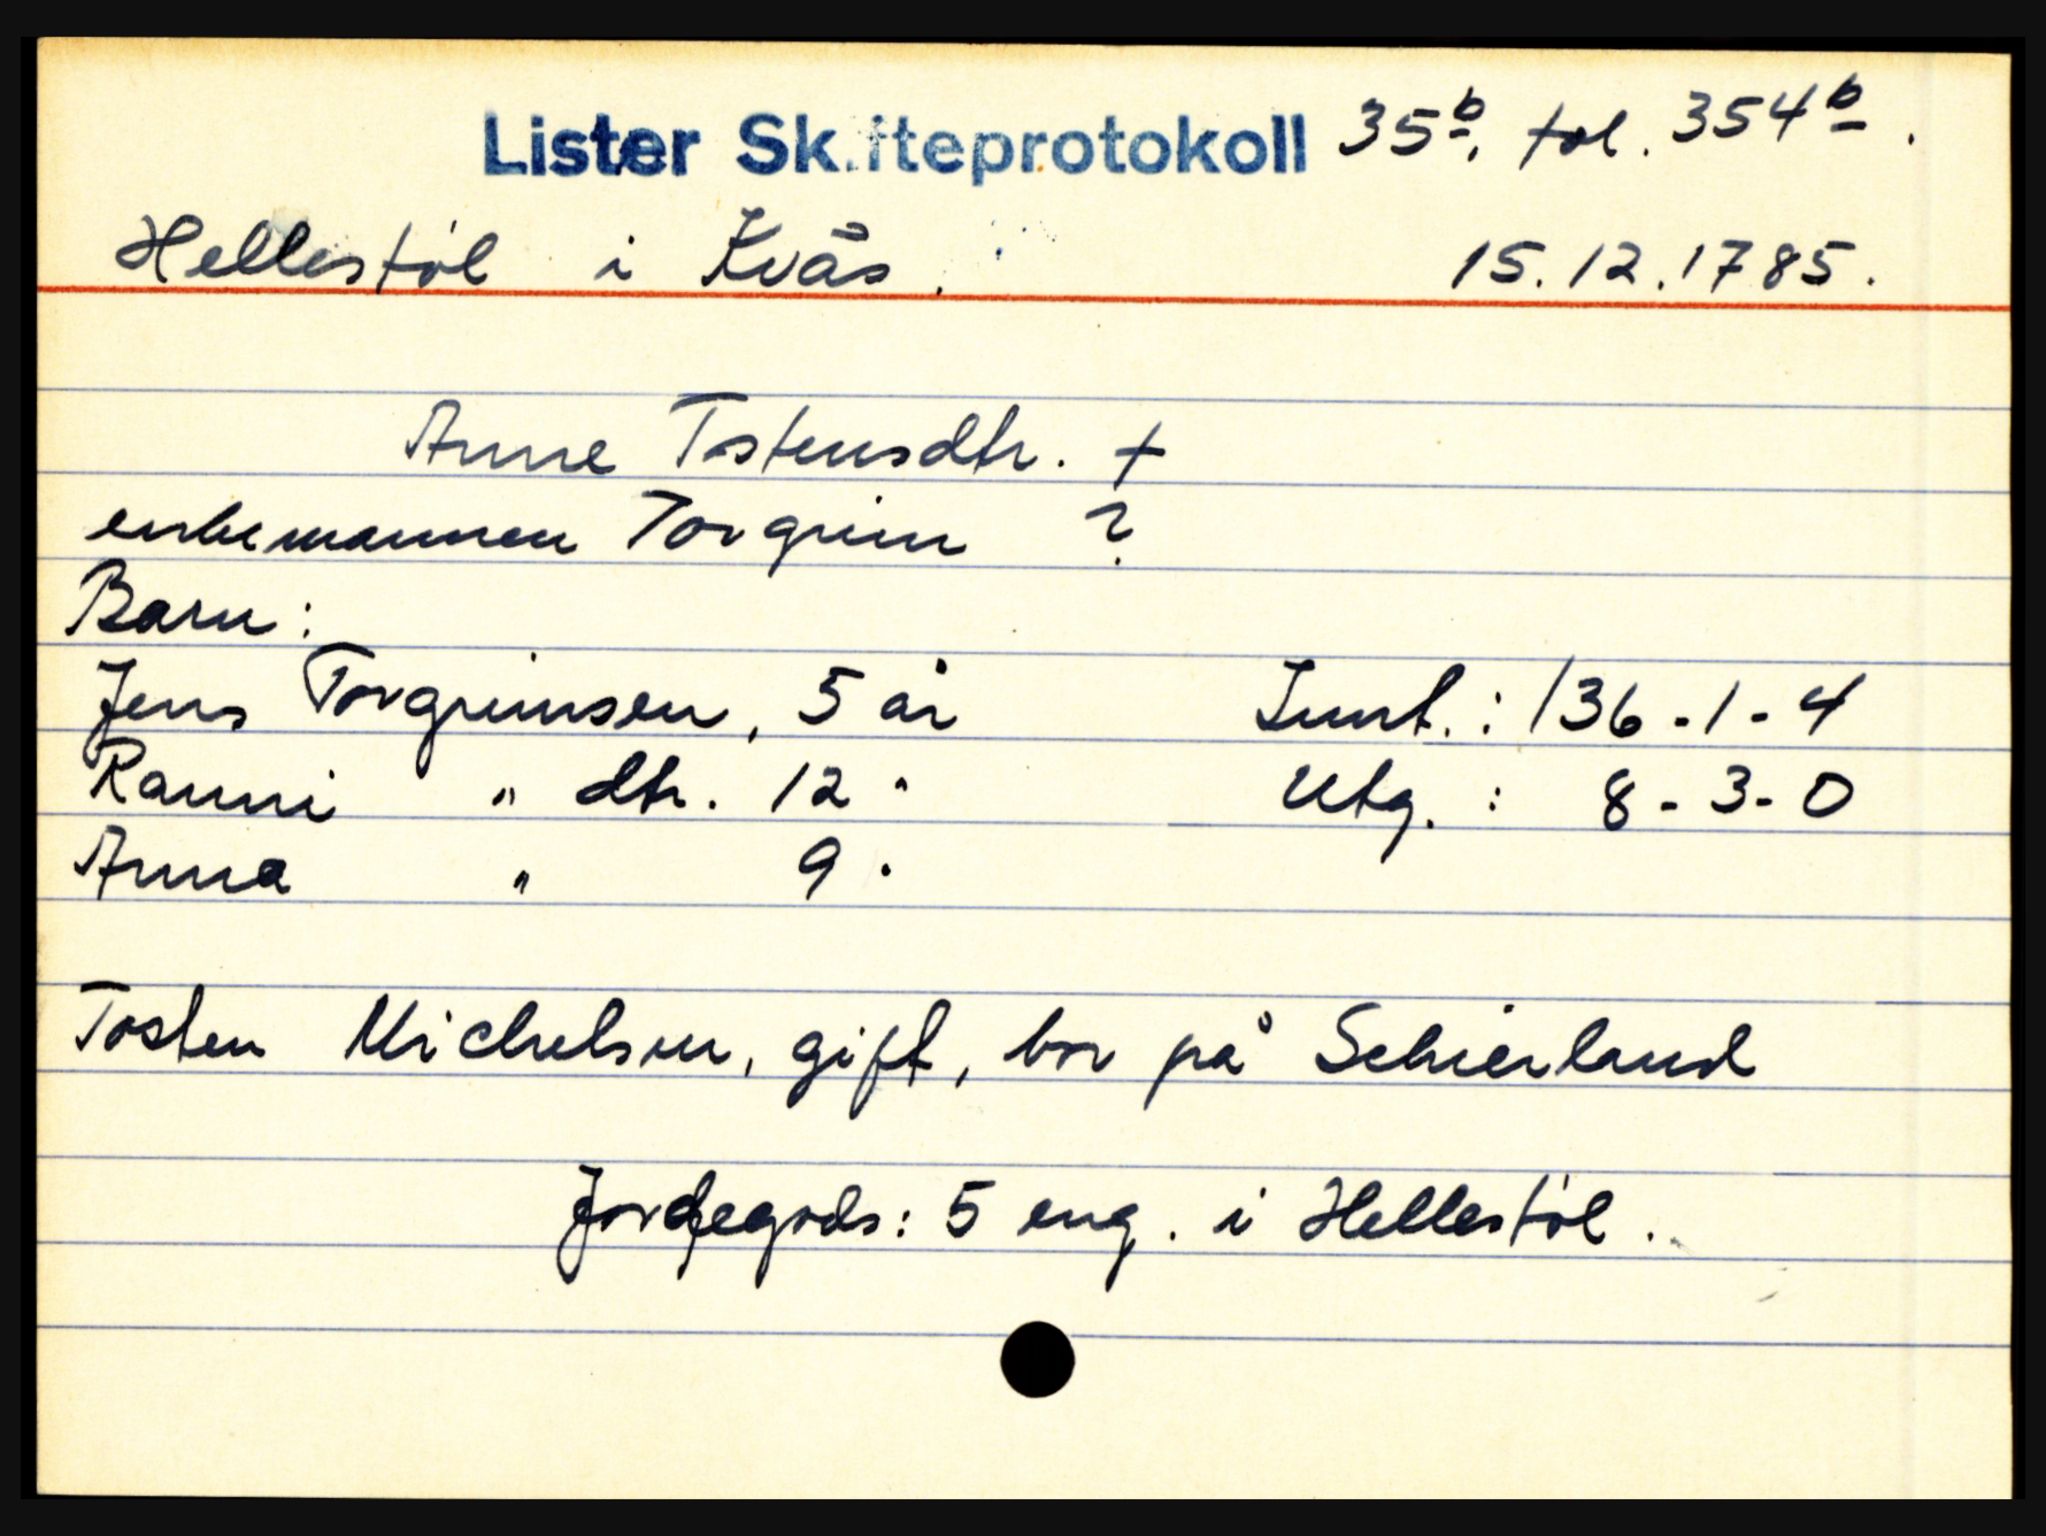 Lister Skifteprotokoll 35b, fol. 354b.
Hellestøl i Kvås. 15.12.1785.
Anne Tostensdtr. +
enkemannen Torgrim ?
Barn:
Jens Torgrimsen, 5 år Innt.: 136-1-4
Ranni " dtr. 12 " Utg. : 8-3-0
Anna " 9 "
Tosten Michelsen, gift, bor på Schierland
Jordegods: 5 eng. i Hellestøl.